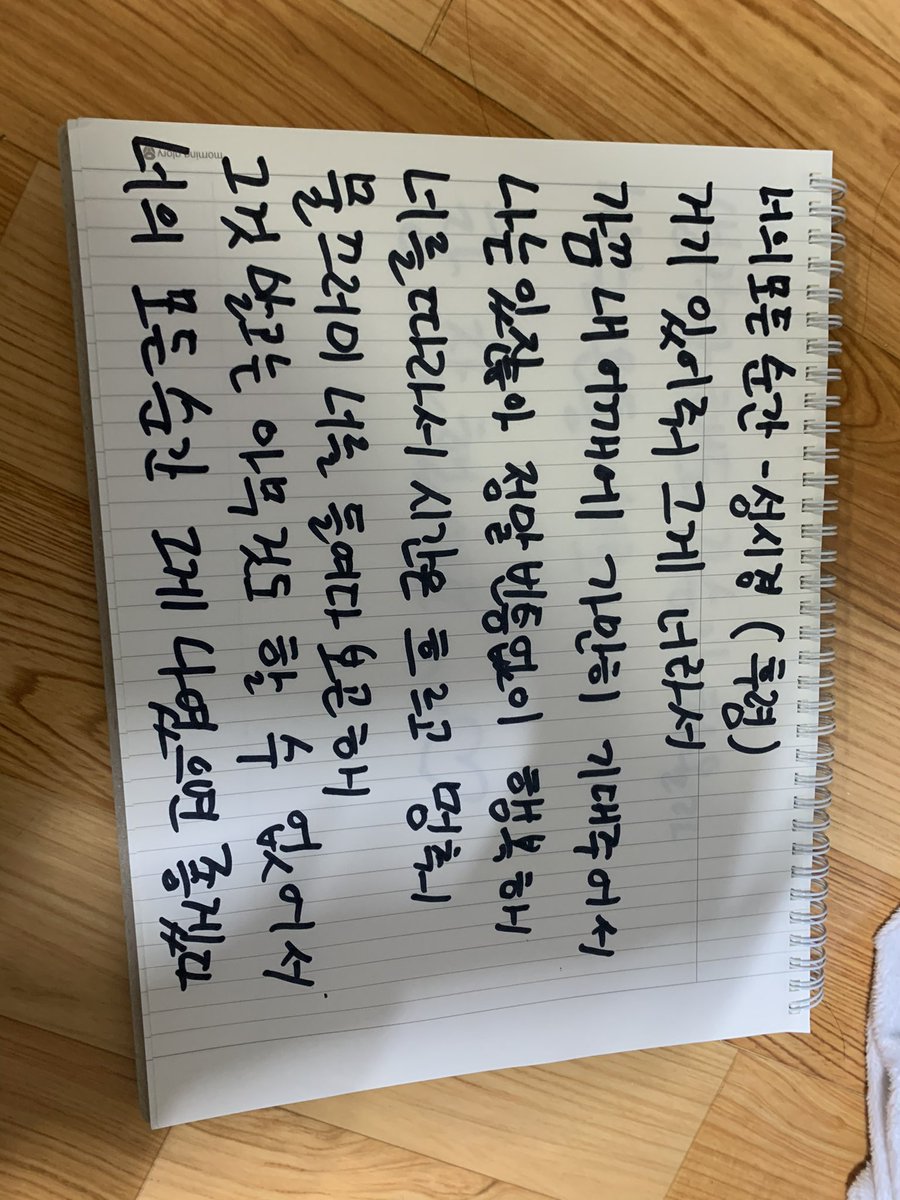 너의모든 순간 -성시경 (후렴)
거기 있어줘 그게 너라서
가끔 내 어깨에 가만히 기대주어서
나는 있잖아 정말 빈틈없이 행복해
너를 따라서 시간은 흐르고 멈춰
물끄러미 너를 들여다 보곤해
그것 살르는 아무것도 할 수 없어서
너의 모든순간 그게 나였으면 좋겠다
morning glory